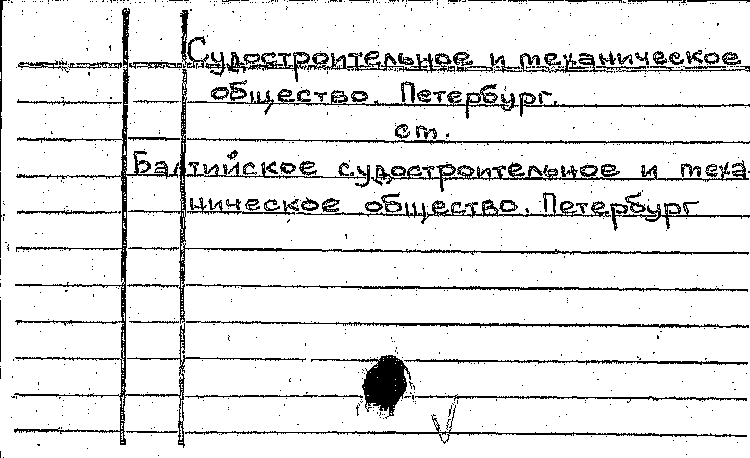 Судостроительное и механическое
общество. Петербург.
ст.
Балтийское судостроительное и меха-
ническое общество. Петербург